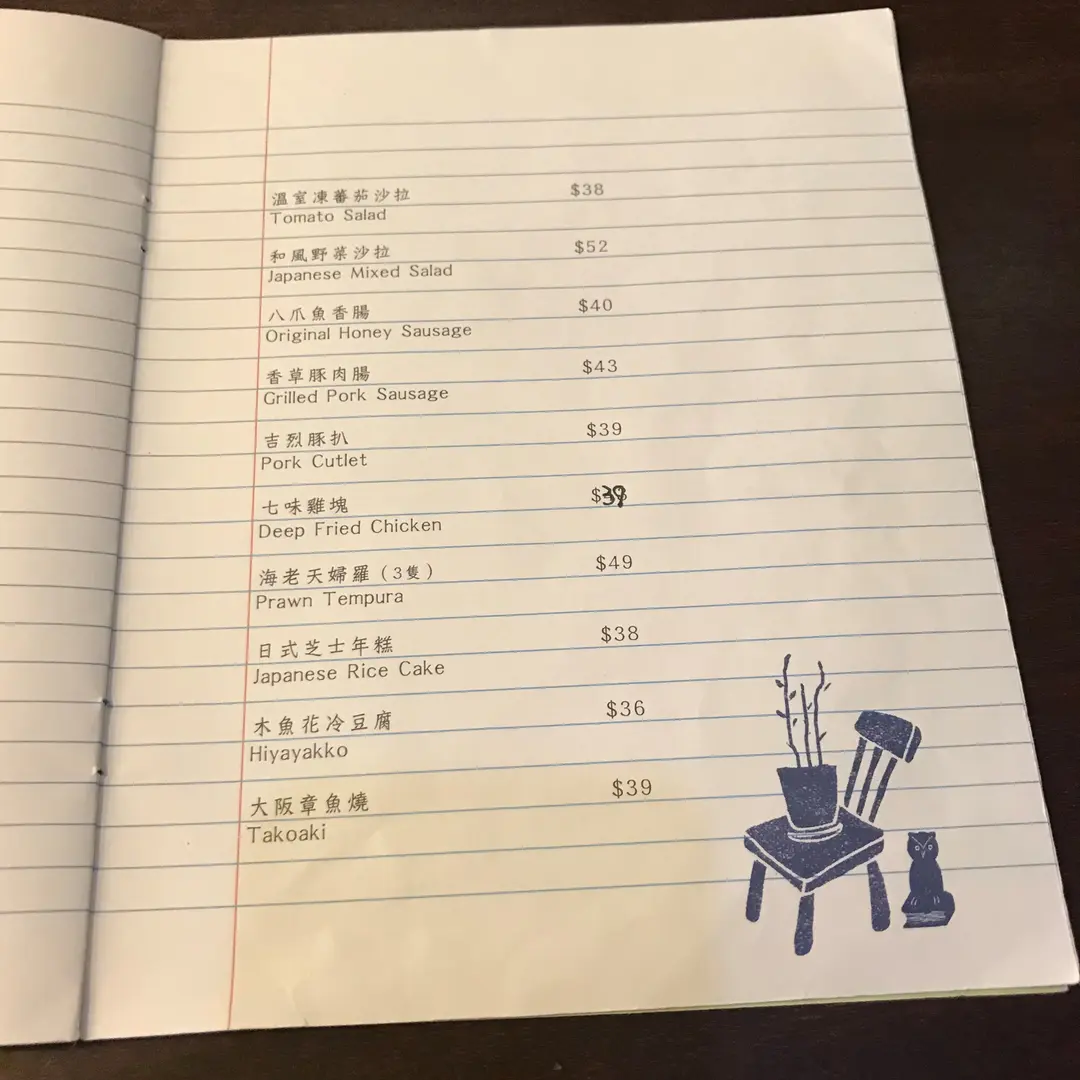 溫室凍蕃茄沙拉 $38
Tomato Salad
和風野菜沙拉 $52
Japanese Mixed Salad
八爪魚香腸 $40
Original Honey Sausage
香草豚肉腸 $43
Grilled Pork Sausage
吉烈豚扒 $39
Pork Cutlet
七味雞塊 $39
Deep Fried Chicken
海老天婦羅(3隻) $49
Prawn Tempura
日式芝士年糕 $38
Japanese Rice Cake
木魚花冷豆腐 $36
Hiyayakko
大阪章魚燒 $39
Takoaki